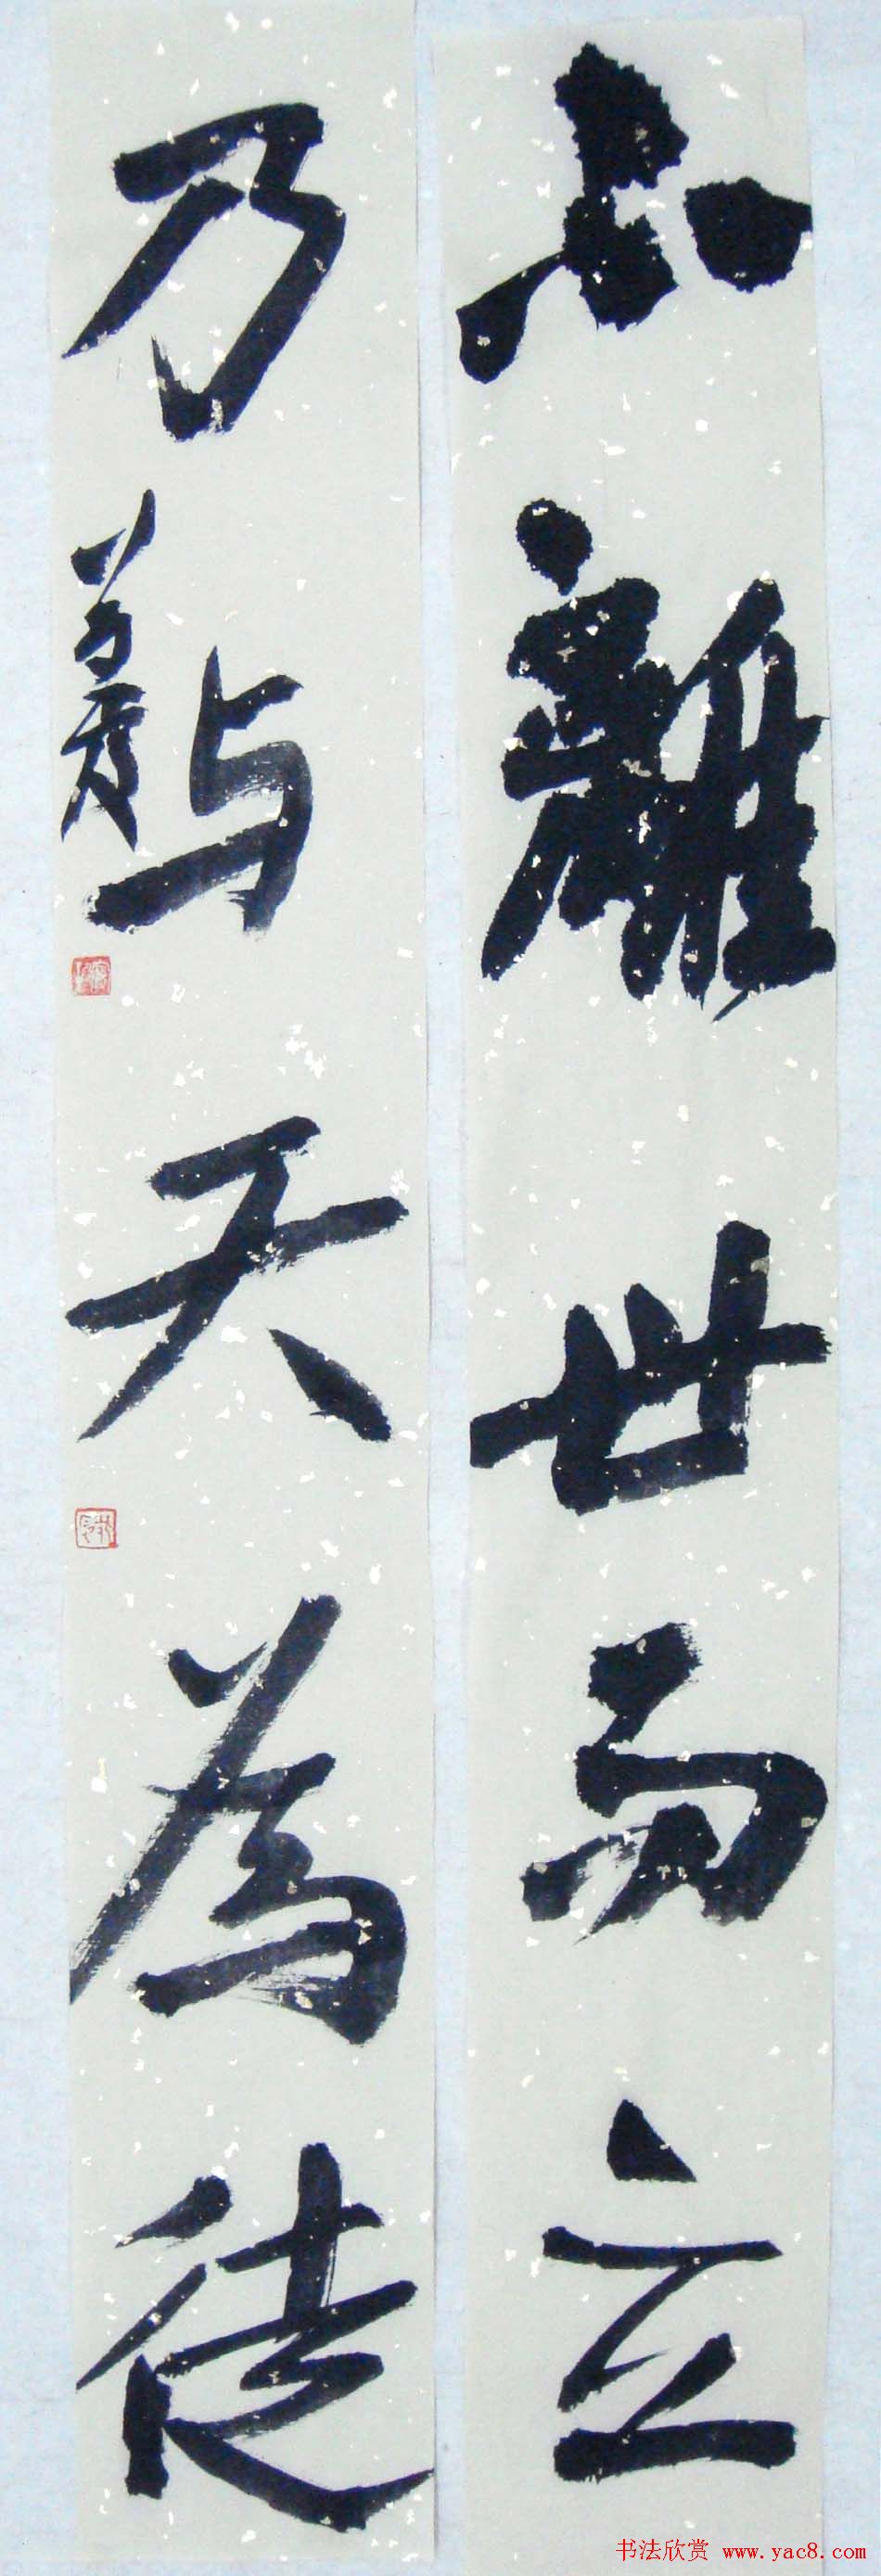 不離世而立
乃與天為徒
书法欣赏 www.yac8.com